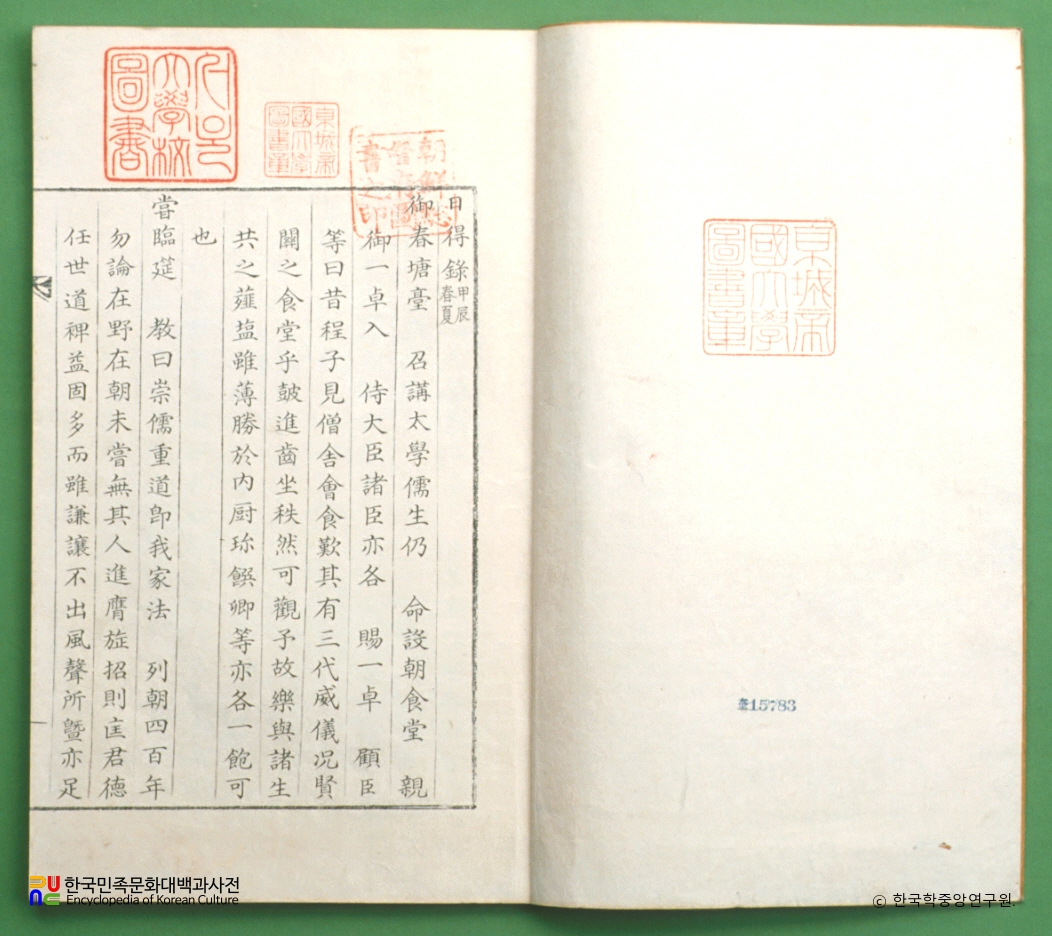 日得錄甲辰春夏
御春塘臺 召講太學儒生仍 命設朝食堂 親
御一卓入 侍大臣諸臣亦各 賜一卓 顧臣
等曰昔程子見僧舍會食歎其有三代威儀况賢
關之食堂乎皷進齒坐秩然可觀予故樂與諸生
共之薤塩雖薄勝於內厨珎饌卿等亦各一飽可
也
甞臨筵 敎曰崇儒重道卽我家法 列朝四百年
勿論在野在朝未嘗無其人進膺旌招則匡君德
任世道裨益固多而雖謙讓不出風聲所曁亦足
朝鮮總督府圖書之印
京城帝國大學圖書章
서울大學校圖書
京城帝國大學圖書章
奎15783
한국민족문화대백과사전
Encyclopedia of Korean Culture
© 한국학중앙연구원